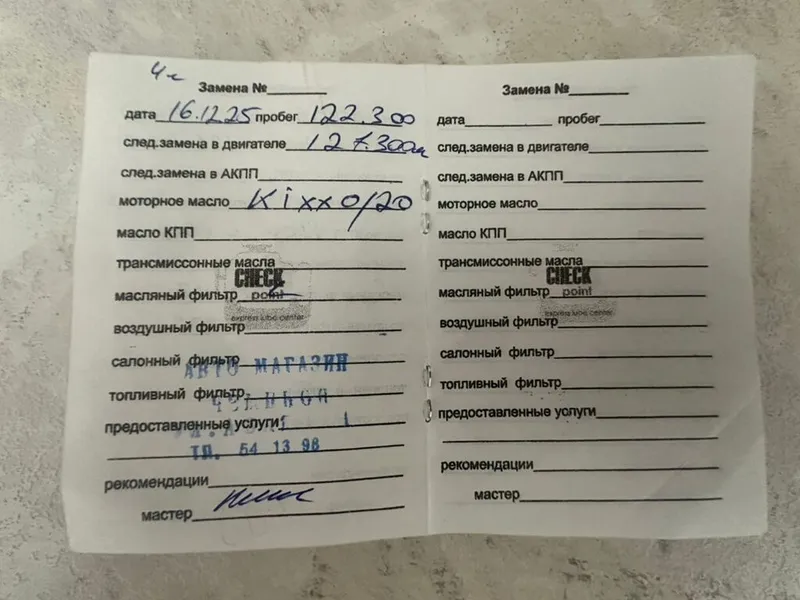 4л
Замена №
дата 16.12.25 пробег 122.300
след.замена в двигателе 127.300
след.замена в АКПП
моторное масло Kixx 0/20
масло КПП
трансмиссонные масла
CHECK
масляный фильтр point
express lube center
воздушный фильтр
салонный фильтр
АВТО МАГАЗИН
топливный фильтр
предоставленные услуги
ТЛ. 54 13 98
рекомендации
мастер
Замена №
дата пробег
след.замена в двигателе
след.замена в АКПП
моторное масло
масло КПП
трансмиссонные масла
CHECK
масляный фильтр point
express lube center
воздушный фильтр
салонный фильтр
топливный фильтр
предоставленные услуги
рекомендации
мастер